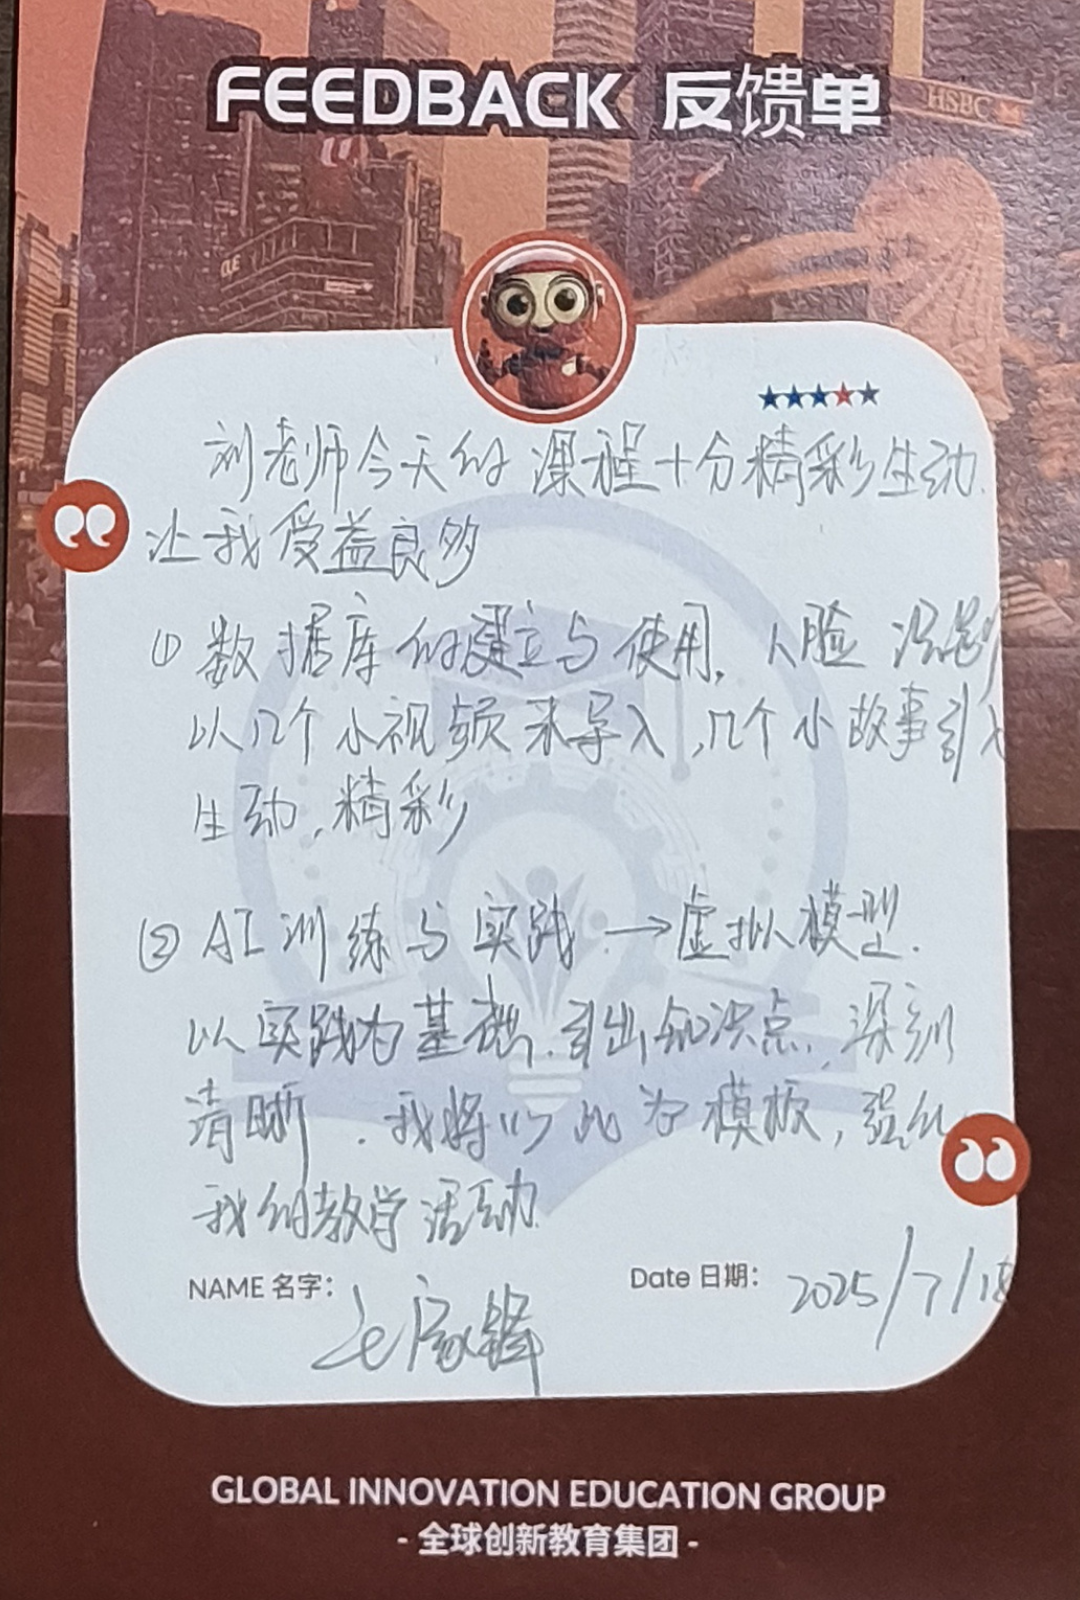 FEEDBACK 反馈单
HSBC
CUE
刘老师今天的课程十分精彩生动.
让我受益良多
① 数据库的建立与使用. 人脸识别
以几个小视频来导入,几个小故事引入
生动,精彩
② AI训练与实践 → 虚拟模型.
以实践为基础.引出知识点,深刻
清晰.我将以此为模板,强化
我的教学活动.
NAME 名字:
家锋
Date 日期: 2025/7/18
GLOBAL INNOVATION EDUCATION GROUP
- 全球创新教育集团 -